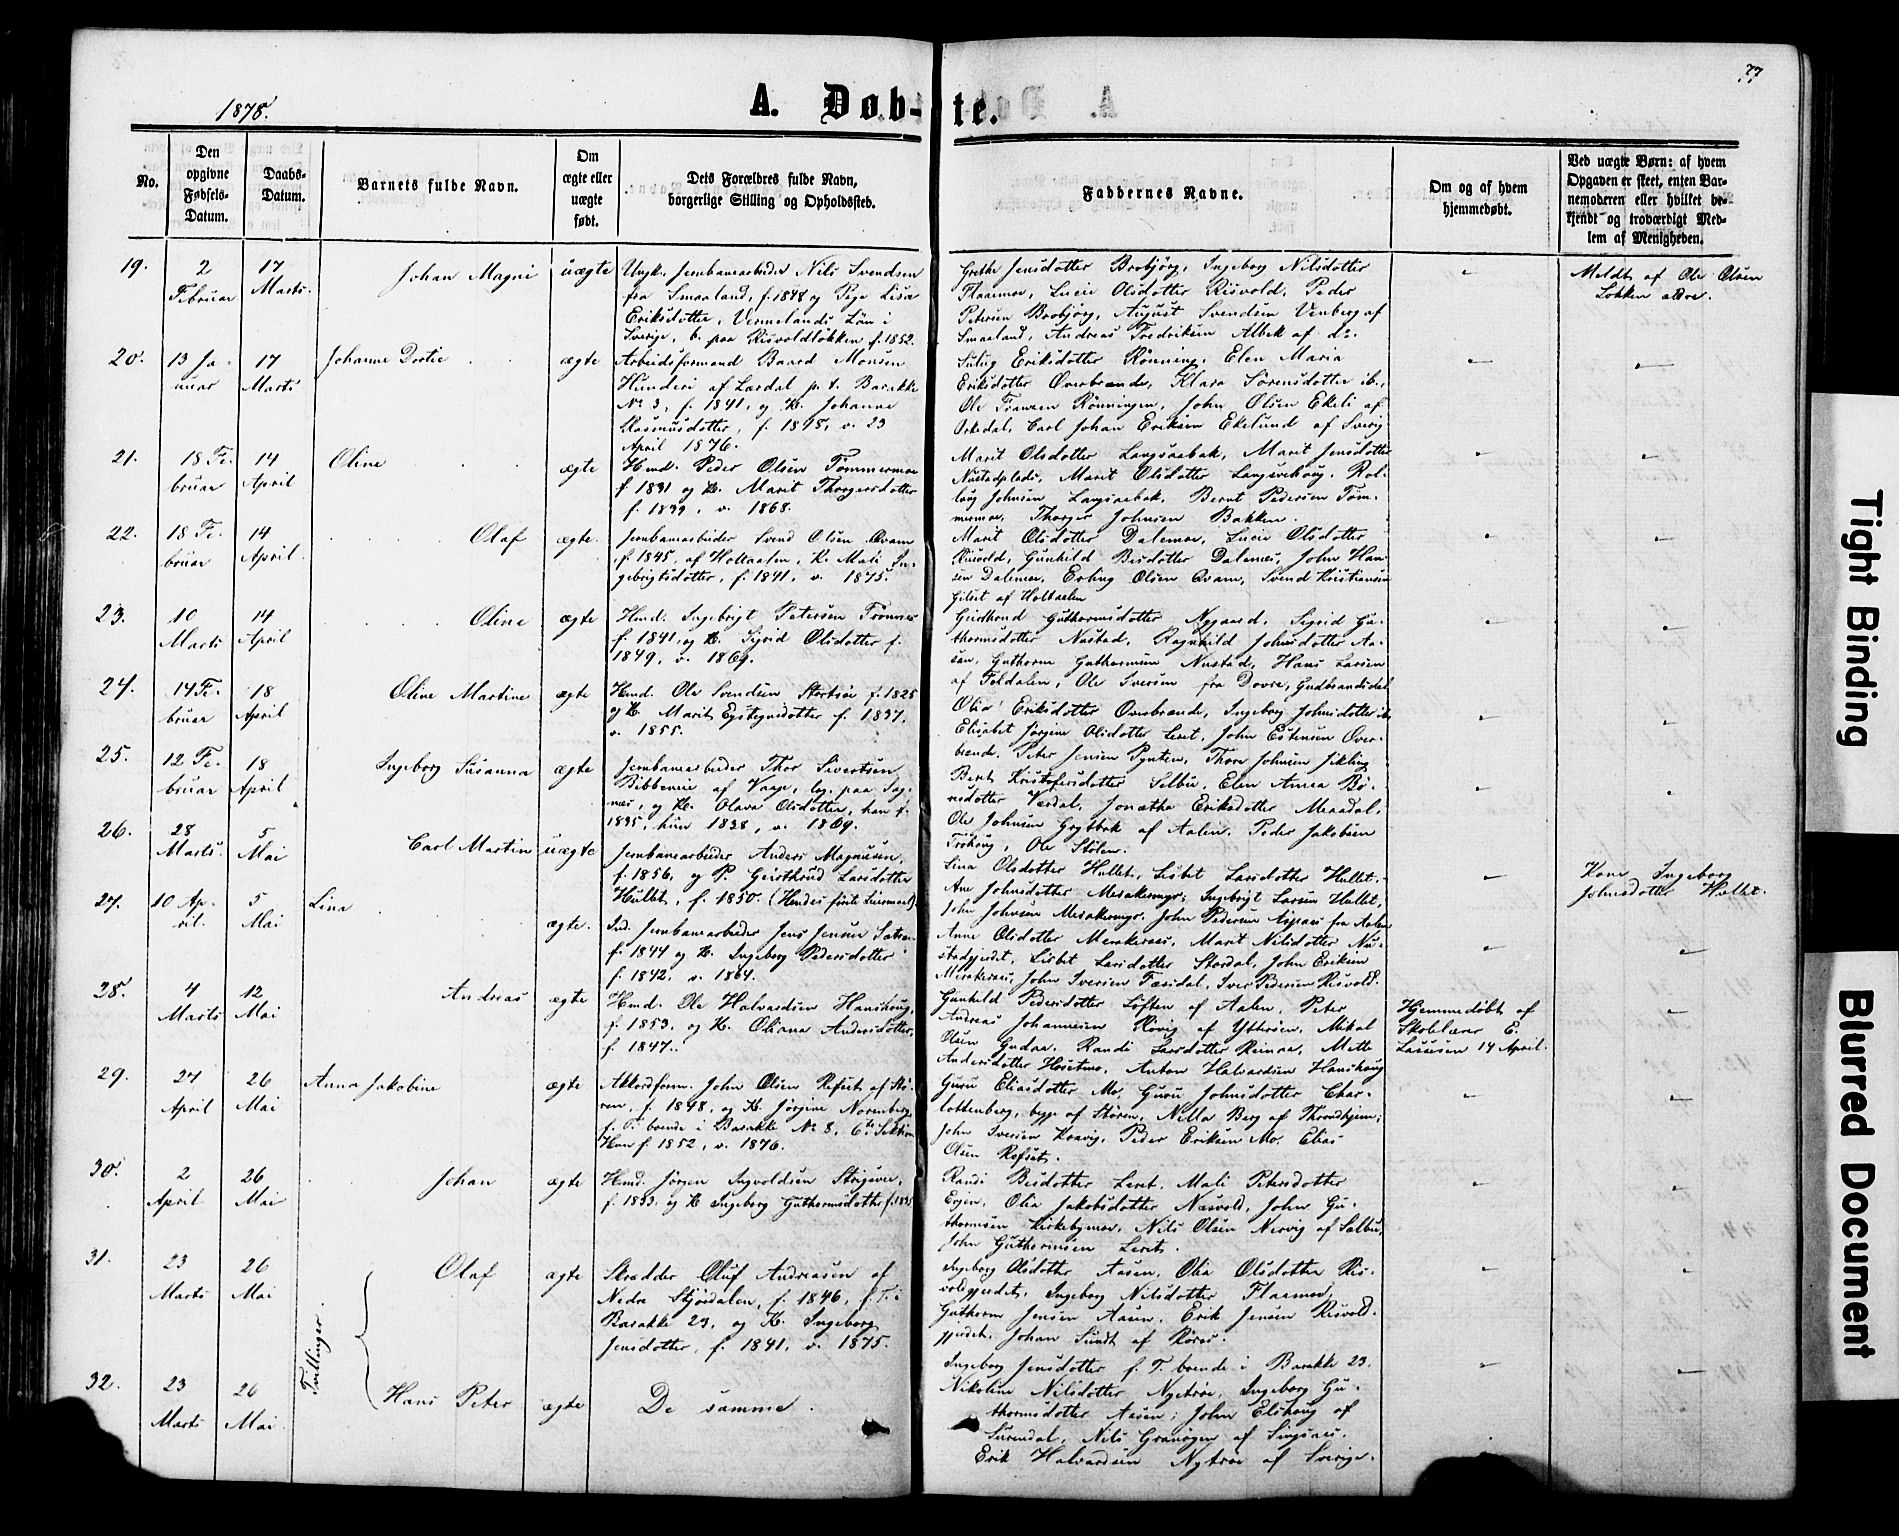 77
1878.
A. Døb-te.
No.
Den
opgivne
Fødsels-
Datum.
Daabs-
Datum.
Barnets fulde Navn.
Om
ægte eller
uægte
født.
Dets Forældres fulde Navn,
borgerlige Stilling og Opholdssted.
Faddernes Navne.
Om og af hvem
hjemmedøbt.
Ved uægte Børn: af hvem
Opgaven er skeet, enten Bar-
nemoderen eller hvilket be-
kjendt og troværdigt Med-
lem af Menigheden.
19.
2
Februar
17
Marts.
Johan Magni
uægte
Ungk. Jernbanearbeider Nils Svendsen
fra Smaaland, f. 1848 og Pige Lisa
Eriksdotter, Vermelands Län i
Sverige, b. paa Risvoldløkken f. 1852.
Grethe Jensdotter Brobjörg, Ingeborg Nilsdotter
Flaamoe, Lucie Olsdotter Risvold, Peder
Petersen Brobjörg, August Svendsen Venberg af
Smaaland, Andreas Fredriksen Albek af do.
Meldt af Ole Olsen
Løkken ældre.
20.
13 Ja-
nuar
17
Marts
Johanne Dortie
ægte
Arbeidsformand Baard Monsen
Hunderi af Lærdal p. t. Barakke
No 3, f. 1841, og K. Johanne
Rasmusdotter, f. 1848, v. 23
April 1876.
Eriksdotter Rønning, Elen Maria
Eriksdotter Overbrænde, Klara Sørensdotter ib.,
Ole Franzen Rönningen, John Olsen Ekeli af
Orkedal, Carl Johan Eriksen Ekelund af Sverig
21.
18 Fe-
bruar
14
April
Oline
ægte
Hmd. Peder Olsen Tømmermoe
f. 1831 og K. Marit Thorgersdotter
f. 1839, v. 1868.
Marit Olsdotter Langsaabak, Marit Jensdotter
Nustadplads, Marit Olsdotter Langsvehoug, Rol-
laug Johnsen Langsaabak, Bernt Pedersen Tøm-
mermoe, Thorger Johnsen Bakken.
22.
18 Fe-
bruar
14
April.
Olaf
ægte.
Jernbanearbeider Svend Olsen Qvam
f. 1845, af Holtaalen, K. Mali In-
gebrigtsdotter, f. 1841, v. 1875.
Marit Olsdotter Dalemoe, Lucie Olsdotter
Risvold, Gunhild Besdotter Dalemoe, John Han-
sen Dalemoe, Erling Olsen Qvam, Svend Kristiansen
af Holtaalen
23.
10
Marts
14
April
Oline
ægte
Hmd. Ingebrigt Petersen Trønnes
f. 1841, og K. Sigrid Olsdotter f.
1849, v. 1869.
Guthormsdotter Nygaard, Sigrid Gu-
thormsdotter Nustad, Ragnhild Johnsdotter Aa-
sen, Guthorm Guthormsen Nustad, Hans Larsen
af Foldalen, Ole Iversen fra Dovre, Gudbrandsdal
24.
14 Fe-
bruar
18
April
Oline Martine
ægte
Hmd. Ole Svendsen Stortröe f. 1825
og K. Marit Eystegnsdotter f. 1837.
v. 1855.
Olia Eriksdotter Overbrænde, Ingeborg Johnsdotter ib.
Elisabet Jørgine Olsdotter Leret, John Estensen Over-
brænde, Peter Jensen Pynten, Thore Johnsen Fikling
25.
12 Fe-
bruar
18
April
Ingeborg Susanna
ægte
Jernbanearbeider Thor Sivertsen
af Vaage, log. paa
og K. Olava Olsdotter, han f.
1835, hun 1838, v. 1869.
Beret Kristofersdotter Selbu, Elen Anna Bö-
nsdotter Værdal, Jonetha Eriksdotter Meradal,
Ole Johnsen Grytbak af Aalen, Peder Jakobsen
Ole Stölen.
26.
28
Marts.
5
Mai
Carl Martin
uægte
Jernbanearbeider Anders Magnusen,
f. 1856, og P. Geirthrud Larsdotter
Hullet, f. 1850. (Hendes første Leiermaal).
Sina Olsdotter Hullet, Lisbet Larsdotter Hullet,
Ane Johnsdotter Merakermyr, Ingebrigt Larsen Hullet,
John Johnsen Merakermyr, John Pedersen Aspaas fra Aalen
Kone Ingeborg
Johnsdotter Hullet.
27.
10 Ap-
ril.
5
Mai
Lina
ægte.
Ind. Jernbanearbeider Jens Jensen
f. 1844 og K. Ingeborg Pedersdotter
f. 1842, v. 1864.
Anne Olsdotter Merakeraas, Marit Nilsdotter Nu-
stadgjerdet, Lisbet Larsdotter Stordal, John Eriksen
Merakeraas, John Iversen Færsdal, Iver Pedersen Risvold.
28.
4
Marts
12
Mai
Andreas
ægte
Hmd. Ole Halvardsen Hanshoug,
f. 1853, og K. Oliana Andersdotter,
f. 1847.
Gunhild Pedersdotter Løften af Aalen, Peter
Andreas Johannesen Røvig af Ytterøen, Mikal
Olsen Gudaa, Randi Larsdotter Reinaa, Mette
Andersdotter Hosetmo, Anton Halvardsen Hanshoug
Hjemmedøbt af
Skolelærer E.
Lassesen 14 April.
29.
24
April
26
Mai
Anna Jakobine
ægte
Akkordform. John Olsen Refset af Stö-
ren, f. 1848, og K. Jörgine Norenberg,
f. T. boende i Barakke No 8, 6te Sektion
Hun f. 1852, v. 1876.
Guru Eliasdotter Mo, Guru Johnsdotter Char-
lottenberg, begge af Støren, Nilla Berg af Throndhjem;
John Iversen Kosvig, Peder Eriksen Mo, Elias
Olsen Refset.
30.
2
April
26
Mai
Johan
ægte
Hmd. Jørgen Ingvoldsen
f. 1833, og K. Ingeborg Guthormsdotter f. 1835
Randi Besdotter Leret, Mali Petersdotter
Evjen, Olia Jakobsdotter Næsvold, John Gu-
thormsen Kirkebymoe, Nils Olsen Nervig af Selbu,
John Guthormsen Leret.
31.
23
Marts
26
Mai
Tvillinger
Olaf
ægte
Skrædder Oluf Andreasen af
Nedre Stjørdalen, f. 1846, f. T. i
Barakke 23, og K. Ingeborg
Jensdotter, f. 1841, v. 1875.
Ingeborg Olsdotter Aasen, Olia Olsdotter Ris-
voldgjerdet, Ingeborg Nilsdotter Flaamoe,
Guthorm Jensen Aasen, Erik Jensen Risvold-
gjerdet, Johan Sundt af Röros.
32.
23
Marts
26
Mai
Hans Peter
ægte
De samme.
Ingeborg Jensdotter f. T. boende i Barakke 23,
Nikoline Nilsdotter Nytröe, Ingeborg Gu-
thormsdotter Aasen, John Elshoug af
Surendal, Nils Granøgen af Singsaas.
Erik Halvardsen Nytröe af Sverige.
Tight Binding
Blurred Document